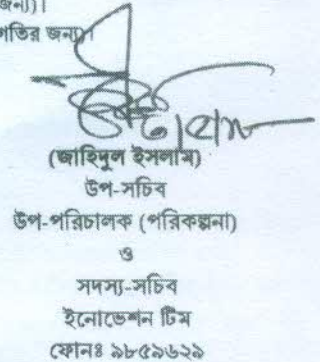 জন্য)।
গতির জন্য)।
(জাহিদুল ইসলাম)
উপ-সচিব
উপ-পরিচালক (পরিকল্পনা)
ও
সদস্য-সচিব
ইনোভেশন টিম
ফোনঃ ৯৮৫৯৬২৯